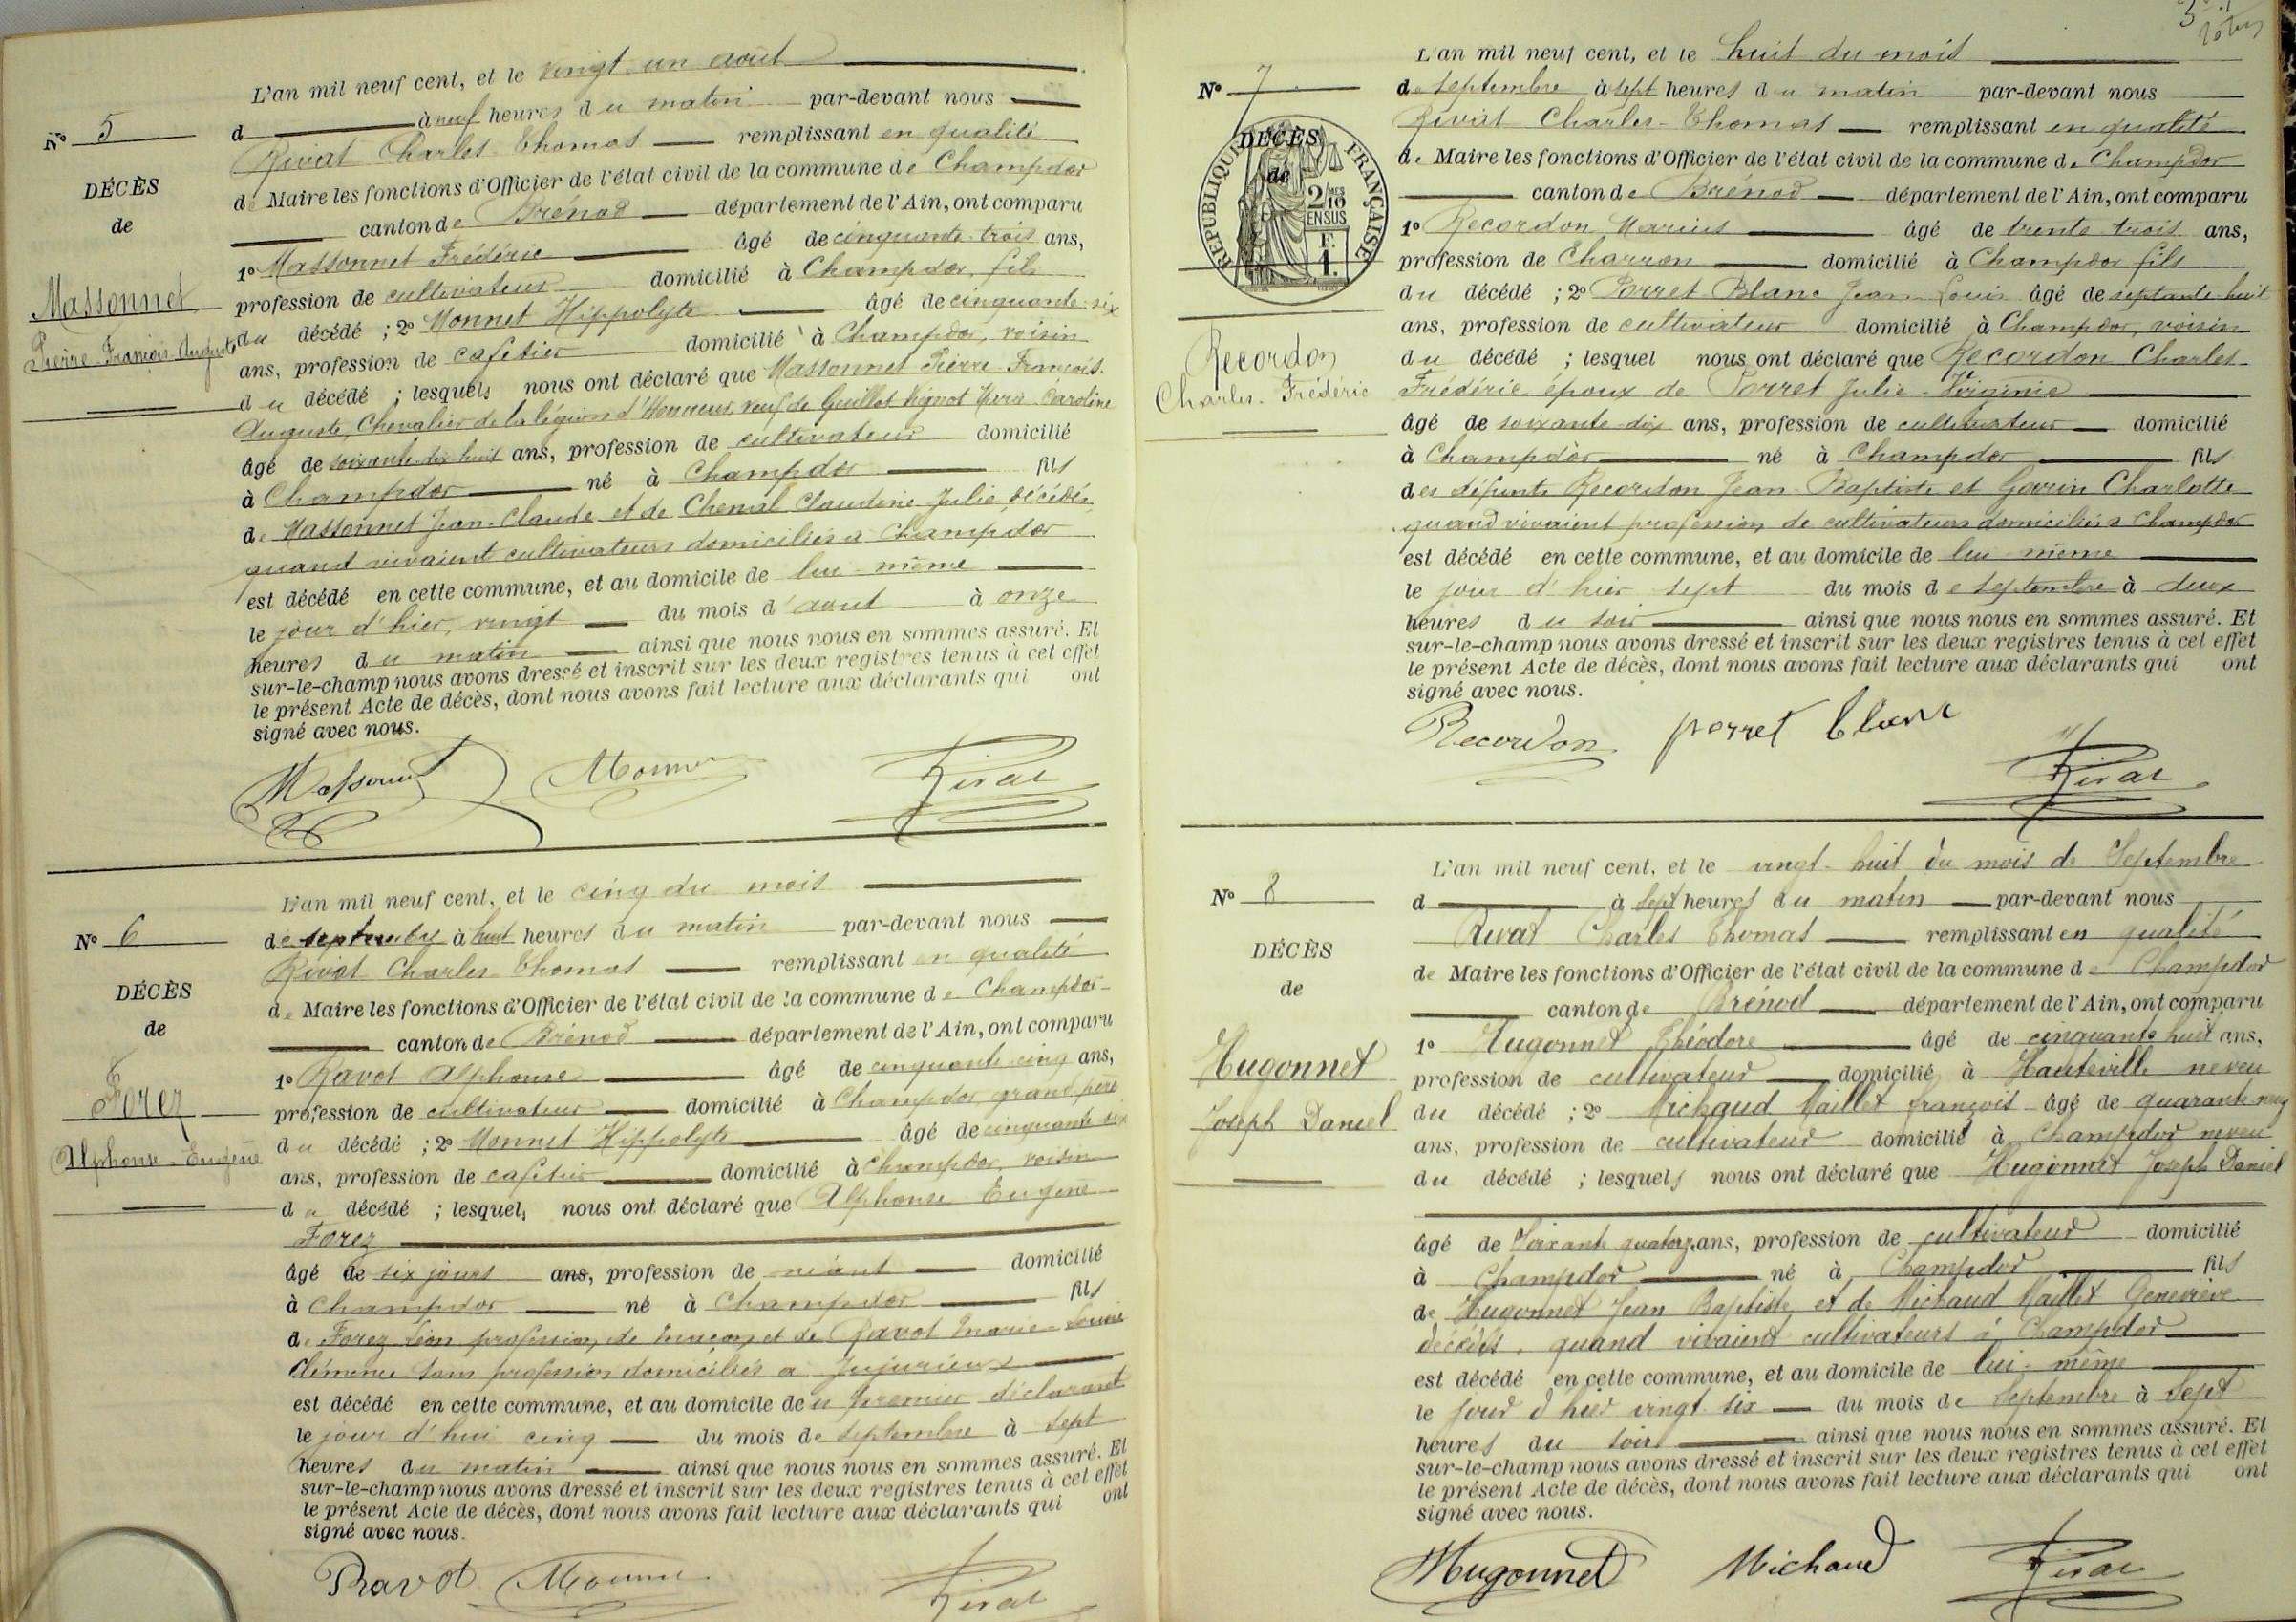 L'an mil neuf cent, et le vingt-un août
Nº 5
d à neuf heures du matin par-devant nous
Rivat Charles-Thomas remplissant en qualité
DÉCÈS
de
de Maire les fonctions d'Officier de l'état civil de la commune de Champdor
canton de Brénod département de l'Ain, ont comparu
1º Massonnet Frédéric âgé de cinquante-trois ans,
Massonnet
Pierre-François-Auguste
profession de cultivateur domicilié à Champdor, fils
du décédé ; 2º Monnet Hippolyte âgé de cinquante-six
ans, profession de cafetier domicilié à Champdor, voisin
du décédé ; lesquels nous ont déclaré que Massonnet Pierre-François-
Auguste, Chevalier de la légion d'Honneur, veuf de Guillot Vignot Marie-Caroline
âgé de soixante-dix huit ans, profession de cultivateur domicilié
à Champdor né à Champdor fils
de Massonnet Jean-Claude et de Chenal Claudine-Julie, décédés,
quand vivaient cultivateurs domiciliés à Champdor
est décédé en cette commune, et au domicile de lui-même
le jour d'hier, vingt du mois d'août à onze
heures du matin ainsi que nous nous en sommes assuré. Et
sur-le-champ nous avons dressé et inscrit sur les deux registres tenus à cet effet
le présent Acte de décès, dont nous avons fait lecture aux déclarants qui ont
signé avec nous.
Massonnet Monnet Rivat
L'an mil neuf cent, et le cinq du mois
Nº 6
de septembre à huit heures du matin par-devant nous
Rivat Charles-Thomas remplissant en qualité
DÉCÈS
de
de Maire les fonctions d'Officier de l'état civil de la commune de Champdor
canton de Brénod département de l'Ain, ont comparu
1º Ravot Alphonse âgé de cinquante-cinq ans,
Forez
Alphonse-Eugène
profession de cultivateur domicilié à Champdor grand père
du décédé ; 2º Monnet Hippolyte âgé de cinquante six
ans, profession de cafetier domicilié à Champdor, voisin
du décédé ; lesquels nous ont déclaré que Alphonse Eugène
Forez
âgé de six jours ans, profession de néant domicilié
à Champdor né à Champdor fils
de Forez Léon profession de maçon et de Ravot Marie-Louise
Clémence sans profession domiciliés à Jujurieux
est décédé en cette commune, et au domicile du premier déclarant
le jour d'hui cinq du mois de septembre à sept
heures du matin ainsi que nous nous en sommes assuré. Et
sur-le-champ nous avons dressé et inscrit sur les deux registres tenus à cet effet
le présent Acte de décès, dont nous avons fait lecture aux déclarants qui ont
signé avec nous.
Ravot Monnet Rivat
L'an mil neuf cent, et le huit du mois
Nº 7
de septembre à sept heures du matin par-devant nous
Rivat Charles-Thomas remplissant en qualité
DÉCÈS
de
RÉPUBLIQUE FRANÇAISE
2/10 MES
EN SUS
F.
1.
de Maire les fonctions d'Officier de l'état civil de la commune de Champdor
canton de Brénod département de l'Ain, ont comparu
1º Recordon Marius âgé de trente-trois ans,
profession de Charron domicilié à Champdor fils
du décédé ; 2º Perret-Blanc Jean-Louis âgé de septante huit
Recordon
Charles-Frédéric
ans, profession de cultivateur domicilié à Champdor, voisin
du décédé ; lesquel nous ont déclaré que Recordon Charles-
Frédéric époux de Perret Julie-Virginie
âgé de soixante-dix ans, profession de cultivateur domicilié
à Champdor né à Champdor fils
des défunts Recordon Jean-Baptiste et Charlotte
quand vivaient profession de cultivateurs domiciliés à Champdor
est décédé en cette commune, et au domicile de lui-même
le jour d'hier sept du mois de septembre à deux
heures du soir ainsi que nous nous en sommes assuré. Et
sur-le-champ nous avons dressé et inscrit sur les deux registres tenus à cet effet
le présent Acte de décès, dont nous avons fait lecture aux déclarants qui ont
signé avec nous.
Recordon perret blanc Rivat
L'an mil neuf cent, et le vingt-huit du mois de Septembre
Nº 8
d à sept heures du matin par-devant nous
Rivat Charles Thomas remplissant en qualité
DÉCÈS
de
de Maire les fonctions d'Officier de l'état civil de la commune de Champdor
canton de Brénod département de l'Ain, ont comparu
1º Hugonnet Théodore âgé de cinquante huit ans,
Hugonnet
Joseph Daniel
profession de cultivateur domicilié à Hauteville neveu
du décédé ; 2º Michaud Maillet françois âgé de quarante neuf
ans, profession de cultivateur domicilié à Champdor neveu
du décédé ; lesquels nous ont déclaré que Hugonnet Joseph Daniel
âgé de Soixante quatorze ans, profession de cultivateur domicilié
à Champdor né à Champdor fils
de Hugonnet Jean Baptiste et de Michaud Maillet Geneviève
décédés, quand vivaient cultivateurs à Champdor
est décédé en cette commune, et au domicile de lui-même
le jour d'hier vingt six du mois de Septembre à Sept
heures du soir ainsi que nous nous en sommes assuré. Et
sur-le-champ nous avons dressé et inscrit sur les deux registres tenus à cet effet
le présent Acte de décès, dont nous avons fait lecture aux déclarants qui ont
signé avec nous.
Hugonnet Michaud Rivat